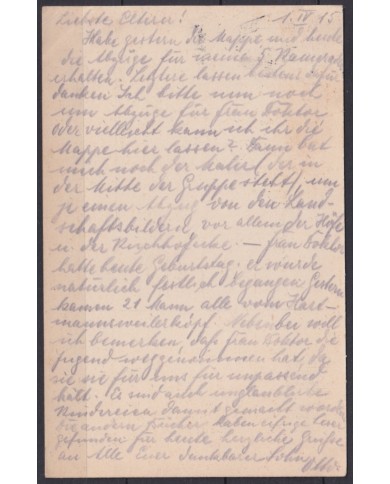 Liebste Eltern! 1. IV 15
Habe gestern die Mappe und heute
die Abzüge für meine 5 Kameraden
erhalten. Letztere lassen bestens dafür
danken. Ich bitte nun noch
um Abzüge für Frau Doktor
oder vielleicht kann ich ihr die
Mappe hier lassen? Dann bat
mich noch der Maler (der in
der Mitte der Gruppe steht) um
je einen Abzug von den Land-
schaftsbildern, vor allem der Höfe
u. der Kirchhofecke. — Frau Doktor
hatte heute Geburtstag, er wurde
natürlich festlich begangen. Gestern
kamen 21 Mann alle vom Hart-
mannsweilerkopf. Nebenbei will
ich bemerken, daß Frau Doktor die
Jugend weggenommen hat, da
sie sie für uns für unpassend
hält. Es sind auch unglaubliche
Kindereien damit gemacht worden
die andern Bücher haben eifrige Leser
gefunden für heute herzliche Grüße
an Alle Euer dankbarer Sohn
Otto